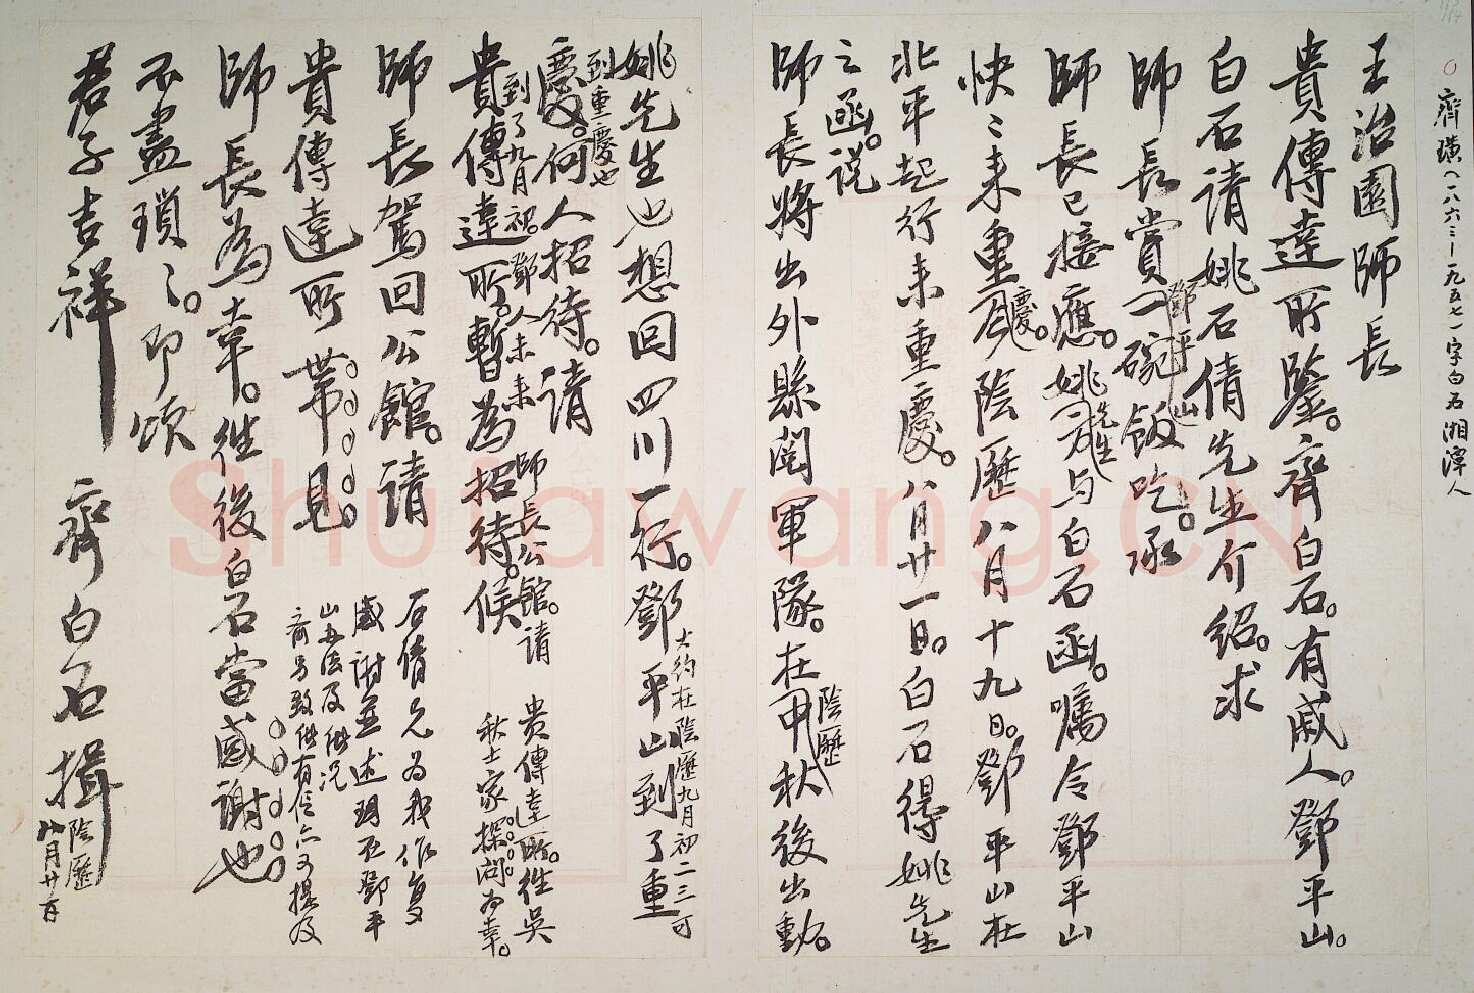 齊璜(一八六三—一九五七)字白石湘潭人
王治園師長
貴傳達所鑒。齊白石。有戚人。鄧平山。
白石請姚石倩先生介紹。求
師長賞
鄧平山
一碗飯吃。承
師長已接應。姚先生
與白石函。囑令鄧平山
快快來重慶。陰歷八月十九日。鄧平山在
北平起行來重慶。八月廿一日。白石得姚先生
之函。說
師長將出外縣閱軍隊。在
陰歷
甲秋後出動。
姚先生也想回四川一行。鄧平山到了重
大約在陰歷九月初二三可
到重慶也
慶。何人招待。請
到了九月初。鄧人未來
貴傳達所。暫為招待。候
師長公館。請
貴傳達所。往吳
秋士家探問為幸。
師長駕回公館。請
貴傳達所帶見
師長為幸。往後白石當感謝也
不盡瑣瑣。即頌
君子吉祥
齊白石揖
陰歷
八月廿二日
石倩兄為我作復
感謝並述明不鄧平
山
供況
齊另致供有信亦又提及
Shufawang.CN